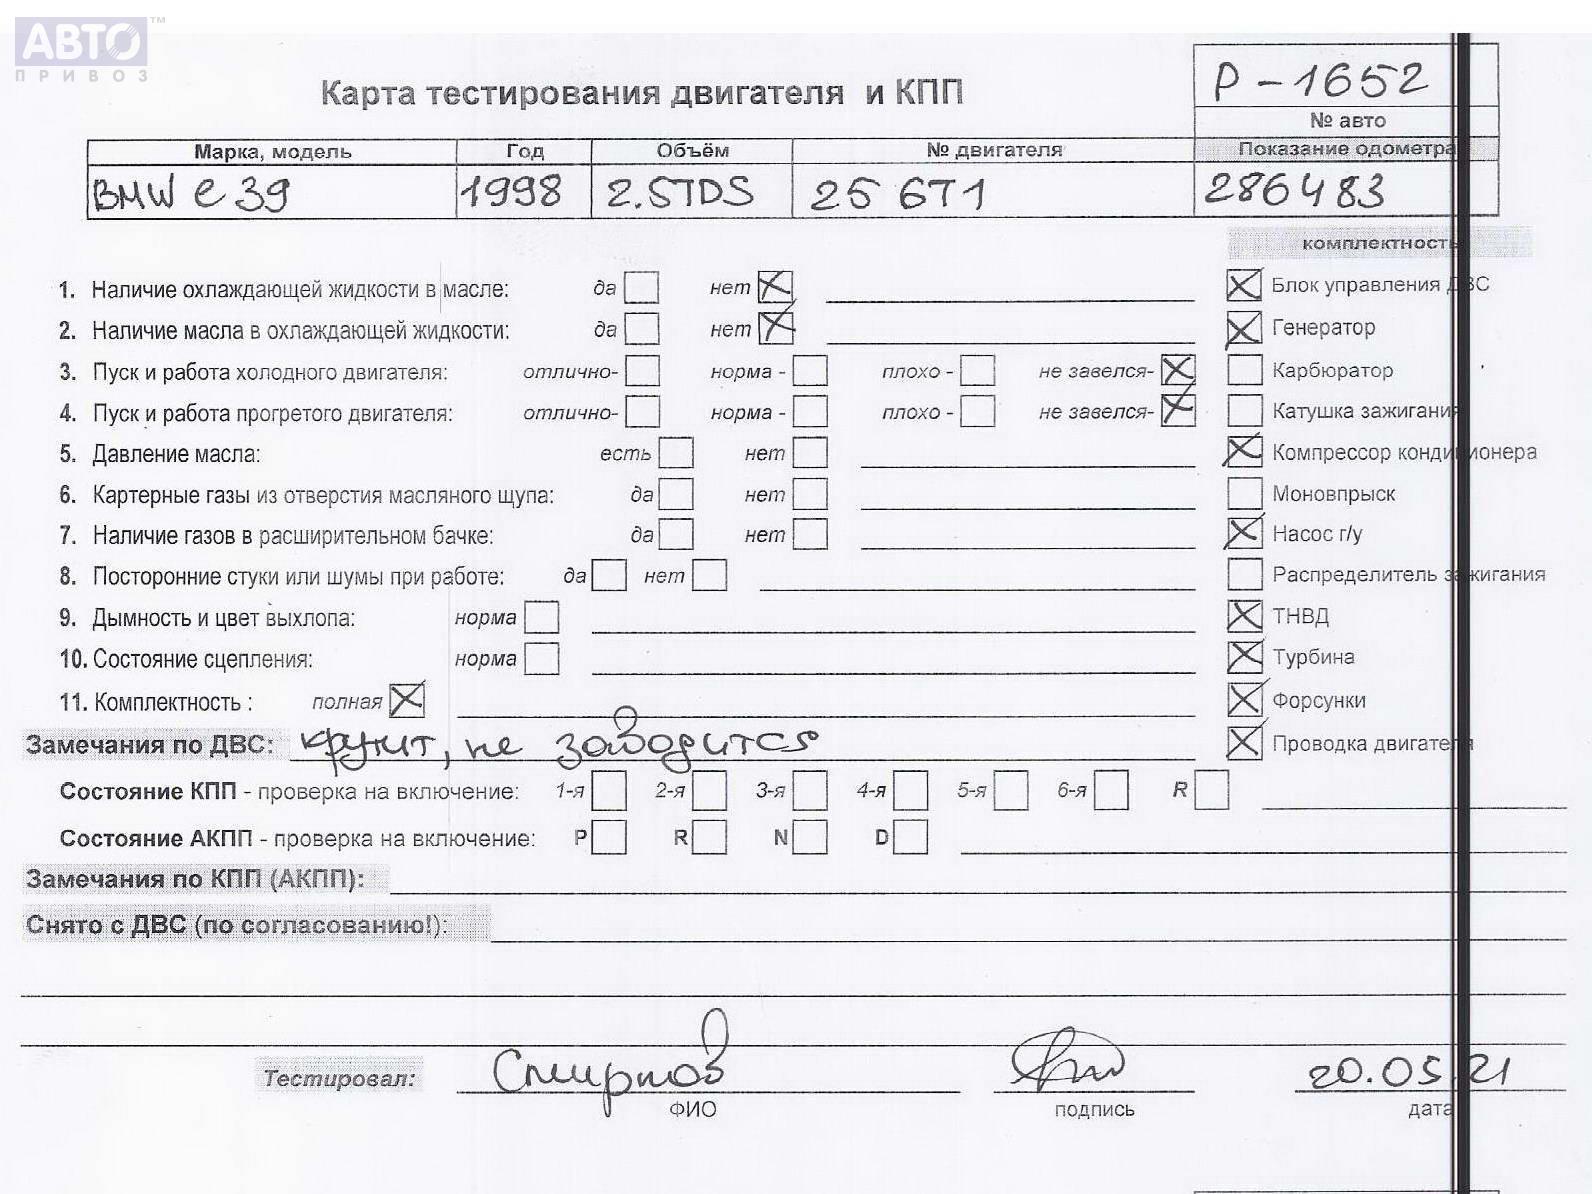 АВТО™
ПРИВОЗ
Карта тестирования двигателя и КПП
Р-1652
№ авто
Марка, модель Год Объём № двигателя Показание одометра
BMW e 39 1998 2.5TDS 25 6T1 286483
комплектность
1. Наличие охлаждающей жидкости в масле: да нет Блок управления ДВС
2. Наличие масла в охлаждающей жидкости: да нет Генератор
3. Пуск и работа холодного двигателя: отлично- норма - плохо - не завелся- Карбюратор
4. Пуск и работа прогретого двигателя: отлично- норма - плохо - не завелся- Катушка зажигания
5. Давление масла: есть нет Компрессор кондиционера
6. Картерные газы из отверстия масляного щупа: да нет Моновпрыск
7. Наличие газов в расширительном бачке: да нет Насос г/у
8. Посторонние стуки или шумы при работе: да нет Распределитель зажигания
9. Дымность и цвет выхлопа: норма ТНВД
10. Состояние сцепления: норма Турбина
11. Комплектность : полная Форсунки
Замечания по ДВС: крутит, не заводится Проводка двигателя
Состояние КПП - проверка на включение: 1-я 2-я 3-я 4-я 5-я 6-я R
Состояние АКПП - проверка на включение: P R N D
Замечания по КПП (АКПП):
Снято с ДВС (по согласованию!):
Тестировал: Смирнов 20.05.21
ФИО подпись дата